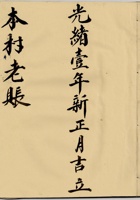 光緒壹年新正月吉立
本村老賬